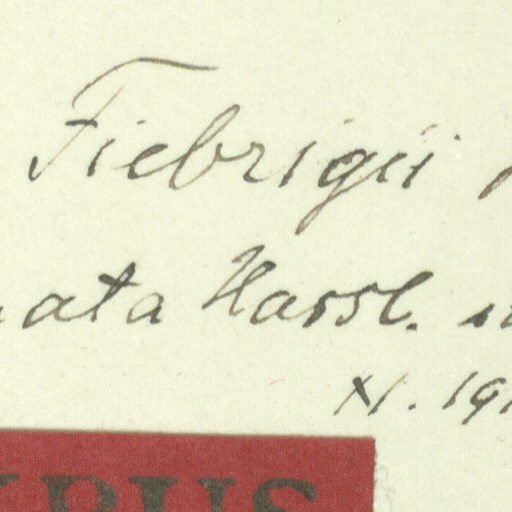 Fiebrigii
ata Hassl.
XI. 19